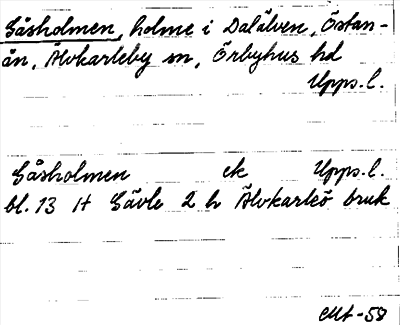 Gåsholmen, holme i Dalälven, Östan-
ån, Älvkarleby sn, Örbyhus hd
Upps.l.
Gåsholmen ek Upps.l.
bl. 13 H Gävle 2 h Älvkarleö bruk
CMt-58